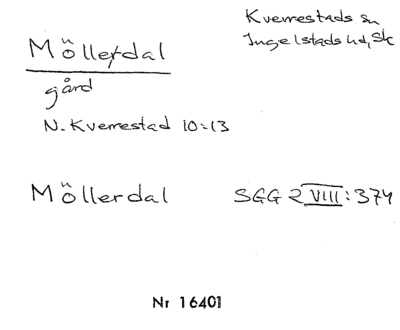 Kverrestads sn
Ingelstads hd, Sk
Möllerdal
gård
N. Kverrestad 10:13
Möllerdal SGG 2 VIII:374
Nr 16401